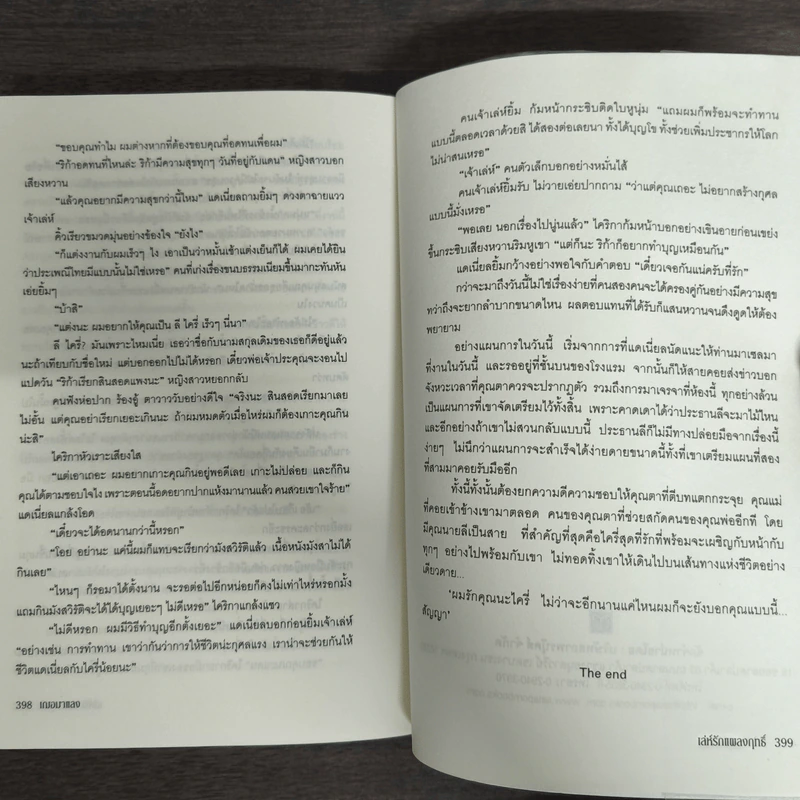 "ขอบคุณทำไม ผมต่างหากที่ต้องขอบคุณที่อดทนเพื่อผม"
"ริก้าอดทนที่ไหนล่ะ ริก้ามีความสุขทุกๆ วันที่อยู่กับแดน" หญิงสาวบอก
เสียงหวาน
"แล้วคุณอยากมีความสุขกว่านี้ไหม" แดเนี่ยลถามยิ้มๆ ดวงตาฉายแวว
เจ้าเล่ห์
คิ้วเรียวขมวดมุ่นอย่างข้องใจ "ยังไง"
"ก็แต่งงานกับผมเร็วๆ ไง เอาเป็นว่าหมั้นเช้าแต่งเย็นก็ได้ ผมเคยได้ยิน
ว่าประเพณีไทยมีแบบนั้นไม่ใช่เหรอ" คนที่เก่งเรื่องขนบธรรมเนียมขึ้นมากะทันหัน
เอ่ยยิ้มๆ
"บ้าสิ"
"แต่งนะ ผมอยากให้คุณเป็น ลี ไครี่ เร็วๆ นี่นา"
ลี ไครี่? มันเพราะไหมเนี่ย เธอว่าชื่อกับนามสกุลเดิมของเธอก็ดีอยู่แล้ว
นะถ้าเทียบกับชื่อใหม่ แต่บอกออกไปไม่ได้หรอก เดี๋ยวพ่อเจ้าประคุณจะงอนไป
แปดวัน "ริก้าเรียกสินสอดแพงนะ" หญิงสาวหยอกกลับ
คนฟังห่อปาก ร้องอู้ ตาวาววับอย่างดีใจ "จริงนะ สินสอดเรียกมาเลย
ไม่อั้น แต่คุณอย่าเรียกเยอะเกินนะ ถ้าผมหมดตัวเมื่อไหร่ผมก็ต้องเกาะคุณกิน
น่ะสิ"
ไคริกาหัวเราะเสียงใส
"แต่เอาเถอะ ผมอยากเกาะคุณกินอยู่พอดีเลย เกาะไม่ปล่อย และก็กิน
คุณได้ตามชอบใจไง เพราะตอนนี้อดอยากปากแห้งมานานแล้ว คนสวยเขาใจร้าย"
แดเนี่ยลแกล้งโอด
"เดี๋ยวจะได้อดนานกว่านี้หรอก"
"โอย อย่านะ แค่นี้ผมก็แทบจะเรียกว่ามังสวิรัติแล้ว เนื้อหนังมังสาไม่ได้
กินเลย"
"ไหนๆ ก็รอมาได้ตั้งนาน จะรอต่อไปอีกหน่อยก็คงไม่เท่าไหร่หรอกมั้ง
แถมกินมังสวิรัติจะได้ได้บุญเยอะๆ ไม่ดีเหรอ" ไคริกาแกล้งแซว
"ไม่ดีหรอก ผมมีวิธีทำบุญอีกตั้งเยอะ" แดเนี่ยลบอกก่อนยิ้มเจ้าเล่ห์
"อย่างเช่น การทำทาน เขาว่ากันว่าการให้ชีวิตน่ะกุศลแรง เราน่าจะช่วยกันให้
ชีวิตแดเนี่ยลกับไครี่น้อยนะ"
398 เฌอมาแลง
คนเจ้าเล่ห์ยิ้ม ก้มหน้ากระซิบติดใบหูนุ่ม "แถมผมก็พร้อมจะทำทาน
แบบนี้ตลอดเวลาด้วยสิ ได้สองต่อเลยนา ทั้งได้บุญโข ทั้งช่วยเพิ่มประชากรให้โลก
ไม่น่าสนเหรอ"
"เจ้าเล่ห์" คนตัวเล็กบอกอย่างหมั่นไส้
คนเจ้าเล่ห์ยิ้มรับ ไม่วายเอ่ยปากถาม "ว่าแต่คุณเถอะ ไม่อยากสร้างกุศล
แบบนี้มั่งเหรอ"
"พอเลย นอกเรื่องไปนู่นแล้ว" ไคริกาก้มหน้าบอกอย่างเขินอายก่อนเขย่ง
ขึ้นกระซิบเสียงหวานริมหูเขา "แต่ก็นะ ริก้าก็อยากทำบุญเหมือนกัน"
แดเนี่ยลยิ้มกว้างอย่างพอใจกับคำตอบ "เดี๋ยวเจอกันแน่ครับที่รัก"
กว่าจะมาถึงวันนี้ไม่ใช่เรื่องง่ายที่คนสองคนจะได้ครองคู่กันอย่างมีความสุข
ทว่าถึงจะยากลำบากขนาดไหน ผลตอบแทนที่ได้รับก็แสนหวานจนดึงดูดให้ต้อง
พยายาม
อย่างแผนการในวันนี้ เริ่มจากการที่แดเนี่ยลนัดแนะให้ท่านมาเซลมา
ที่งานในวันนี้ และรออยู่ที่ชั้นบนของโรงแรม จากนั้นก็ให้สายคอยส่งข่าวบอก
จังหวะเวลาที่คุณตาควรจะปรากฏตัว รวมถึงการมาเจรจาที่ห้องนี้ ทุกอย่างล้วน
เป็นแผนการที่เขาจัดเตรียมไว้ทั้งสิ้น เพราะคาดเดาได้ว่าประธานลีจะมาไม้ไหน
และอีกอย่างถ้าเขาไม่สวนกลับแบบนี้ ประธานลีก็ไม่มีทางปล่อยมือจากเรื่องนี้
ง่ายๆ ไม่นึกว่าแผนการจะสำเร็จได้ง่ายดายขนาดนี้ทั้งที่เขาเตรียมแผนที่สอง
ที่สามมาคอยรับมืออีก
ทั้งนี้ทั้งนั้นต้องยกความดีความชอบให้คุณตาที่ตีบทแตกกระจุย คุณแม่
ที่คอยเข้าข้างเขามาตลอด คนของคุณตาที่ช่วยสกัดคนของคุณพ่ออีกที โดย
มีคุณนายลีเป็นสาย ที่สำคัญที่สุดคือไครี่สุดที่รักที่พร้อมจะเผชิญกับหน้ากับ
ทุกๆ อย่างไปพร้อมกับเขา ไม่ทอดทิ้งเขาให้เดินไปบนเส้นทางแห่งชีวิตอย่าง
เดียวดาย...
'ผมรักคุณนะไครี่ ไม่ว่าจะอีกนานแค่ไหนผมก็จะยังบอกคุณแบบนี้...
สัญญา'
The end
เล่ห์รักแพลงฤทธิ์ 399